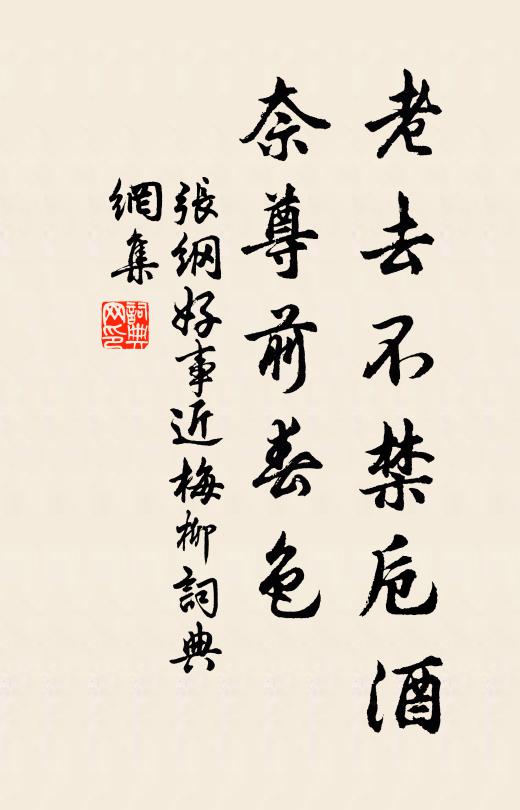 老去不禁卮酒
奈尊前春色
張綱好事近梅柳詞典
網集
詞典
网印